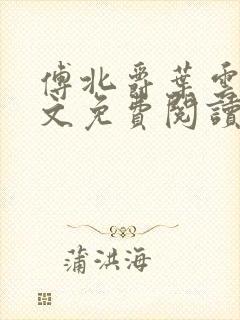 傅北爵葉雲
文免費閱讀
蒲洪海